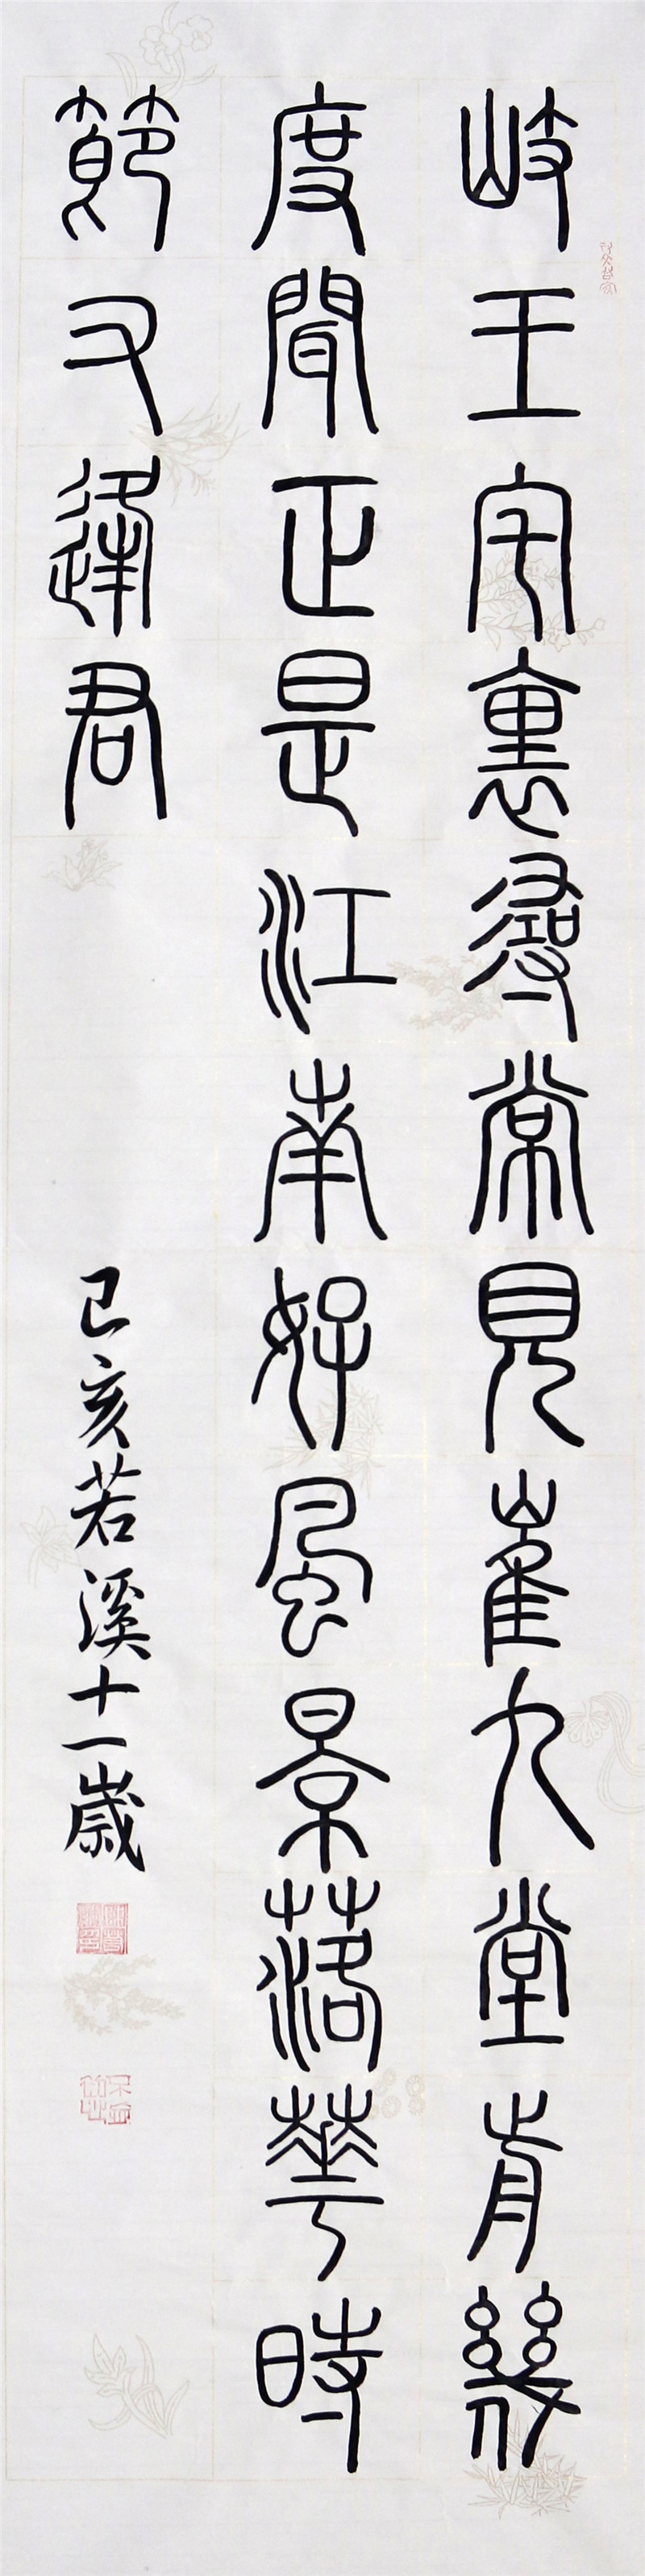 岐王宅裏尋常見崔九堂前幾
度聞正是江南好風景落華時
節又逢君
己亥若溪十一歲